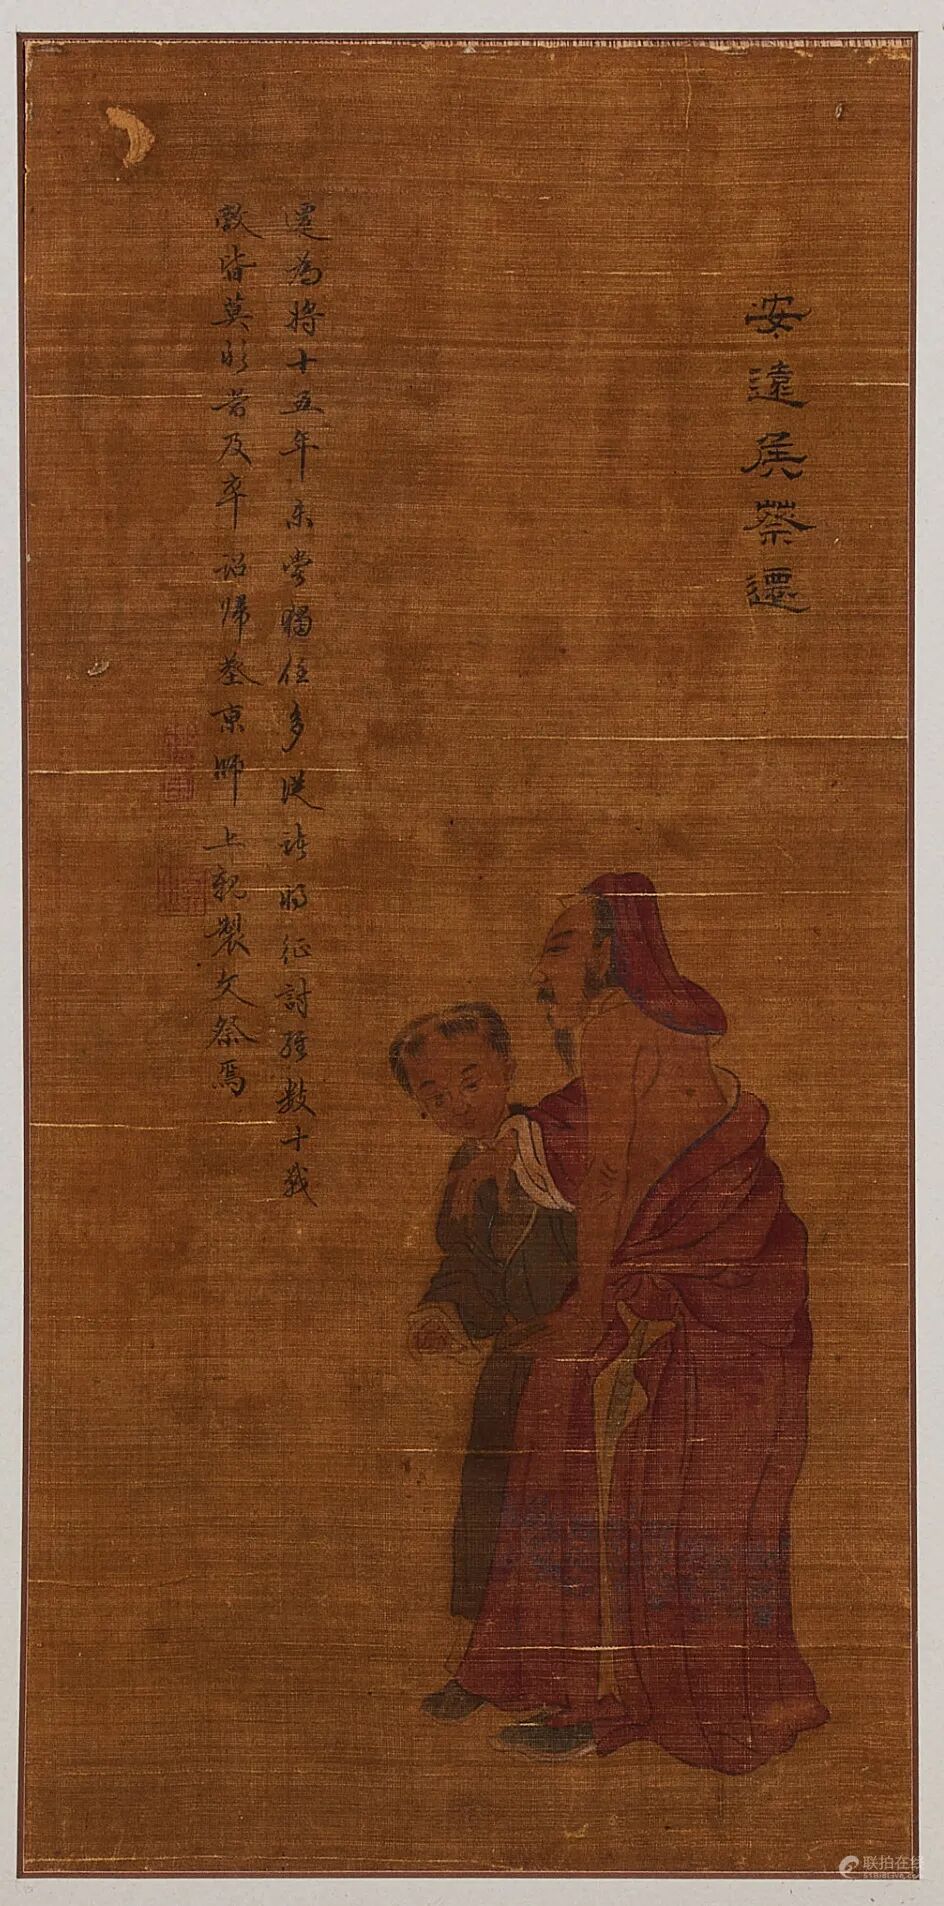 安遠侯蔡遷
遷為將十五年未嘗獨任多從諸將征討經數十戰
敵皆莫敢當及卒詔歸葬京師上親製文祭焉
联拍在线